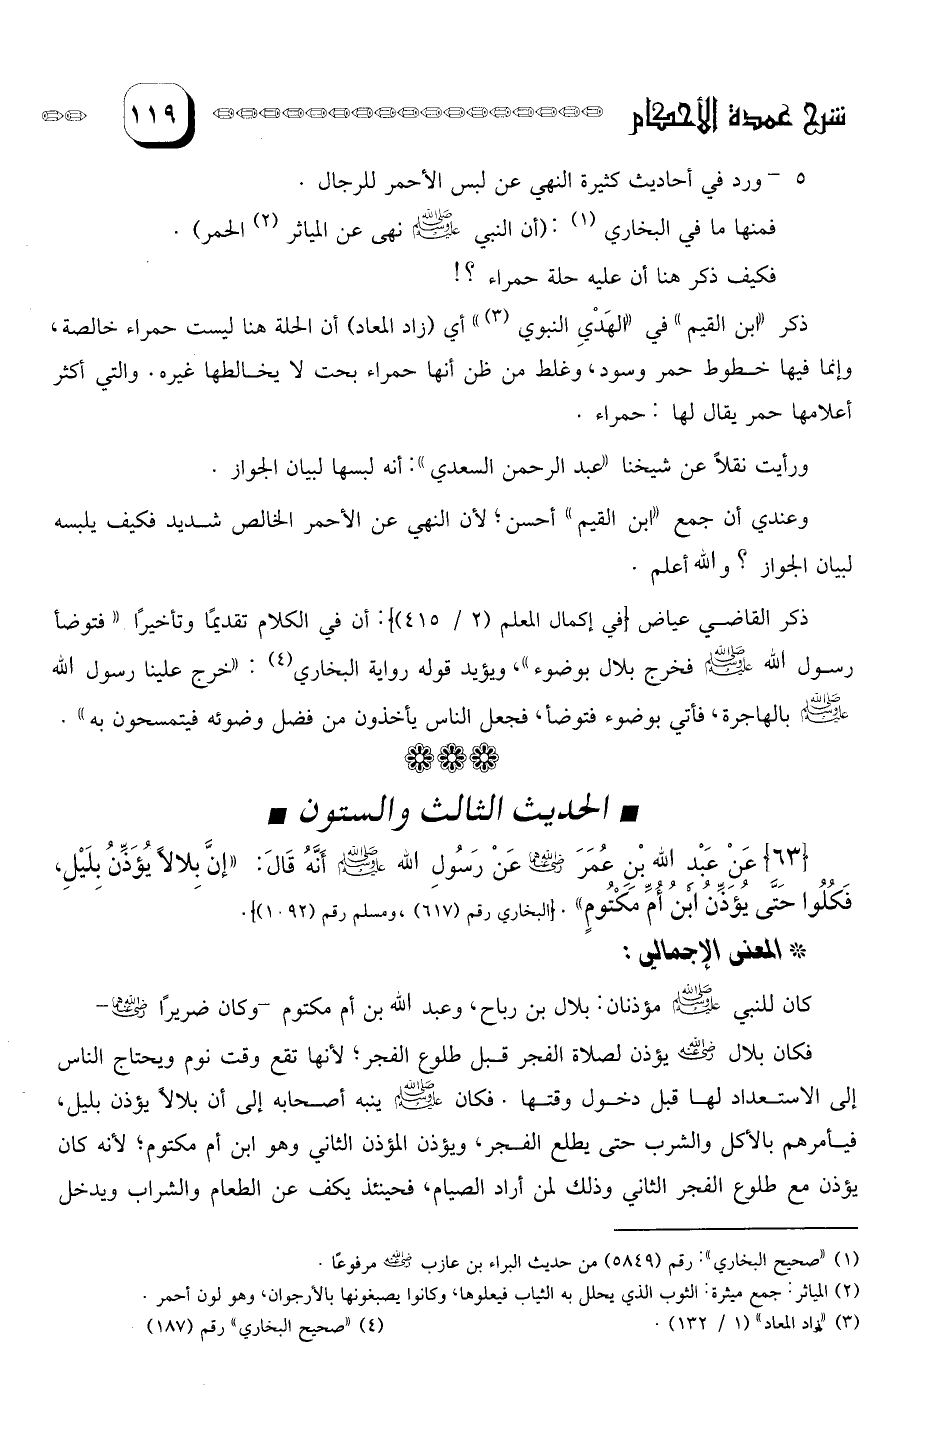 شرح عمدة الأحكام ١١٩
٥ - ورد في أحاديث كثيرة النهي عن لبس الأحمر للرجال .
فمنها ما في البخاري (١) : (أن النبي ﷺ نهى عن المياثر (٢) الحمر) .
فكيف ذكر هنا أن عليه حلة حمراء ؟!
ذكر «ابن القيم» في «الهَدْيِ النبوي (٣)» أي (زاد المعاد) أن الحلة هنا ليست حمراء خالصة،
وإنما فيها خطوط حمر وسود، وغلط من ظن أنها حمراء بحت لا يخالطها غيره. والتي أكثر
أعلامها حمر يقال لها : حمراء .
ورأيت نقلاً عن شيخنا «عبد الرحمن السعدي»: أنه لبسها لبيان الجواز .
وعندي أن جمع «ابن القيم» أحسن؛ لأن النهي عن الأحمر الخالص شديد فكيف يلبسه
لبيان الجواز ؟ والله أعلم .
ذكر القاضي عياض {في إكمال المعلم (٢ / ٤١٥)}: أن في الكلام تقديمًا وتأخيرًا « فتوضأ
رسول الله ﷺ فخرج بلال بوضوء»، ويؤيد قوله رواية البخاري(٤) : «خرج علينا رسول الله
ﷺ بالهاجرة، فأتي بوضوء فتوضأ، فجعل الناس يأخذون من فضل وضوئه فيتمسحون به» .
■ الحديث الثالث والستون ■
{٦٣} عَنْ عَبْدِ اللهِ بْنِ عُمَرَ رضي الله عنهما عَنْ رَسُولِ اللهِ ﷺ أَنَّهُ قَالَ: «إِنَّ بِلالاً يُؤَذِّنُ بِلَيْلٍ،
فَكُلُوا حَتَّى يُؤَذِّنَ ابْنُ أُمِّ مَكْتُومٍ» . {البخاري رقم (٦١٧) ،ومسلم رقم (١٠٩٢)}.
* المعنى الإجمالي :
كان للنبي ﷺ مؤذنان: بلال بن رباح، وعبد الله بن أم مكتوم -وكان ضريرًا رضي الله عنهما-
فكان بلال رضي الله عنه يؤذن لصلاة الفجر قبل طلوع الفجر؛ لأنها تقع وقت نوم ويحتاج الناس
إلى الاستعداد لها قبل دخول وقتها . فكان ﷺ ينبه أصحابه إلى أن بلالاً يؤذن بليل،
فيأمرهم بالأكل والشرب حتى يطلع الفجر، ويؤذن المؤذن الثاني وهو ابن أم مكتوم؛ لأنه كان
يؤذن مع طلوع الفجر الثاني وذلك لمن أراد الصيام، فحينئذ يكف عن الطعام والشراب ويدخل
(١) «صحيح البخاري»: رقم (٥٨٤٩) من حديث البراء بن عازب رضي الله عنهما مرفوعًا .
(٢) المياثر: جمع ميثرة: الثوب الذي يحلل به الثياب فيعلوها، وكانوا يصبغونها بالأرجوان، وهو لون أحمر .
(٣) «زاد المعاد» (١ / ١٣٢) . (٤) «صحيح البخاري» رقم (١٨٧)